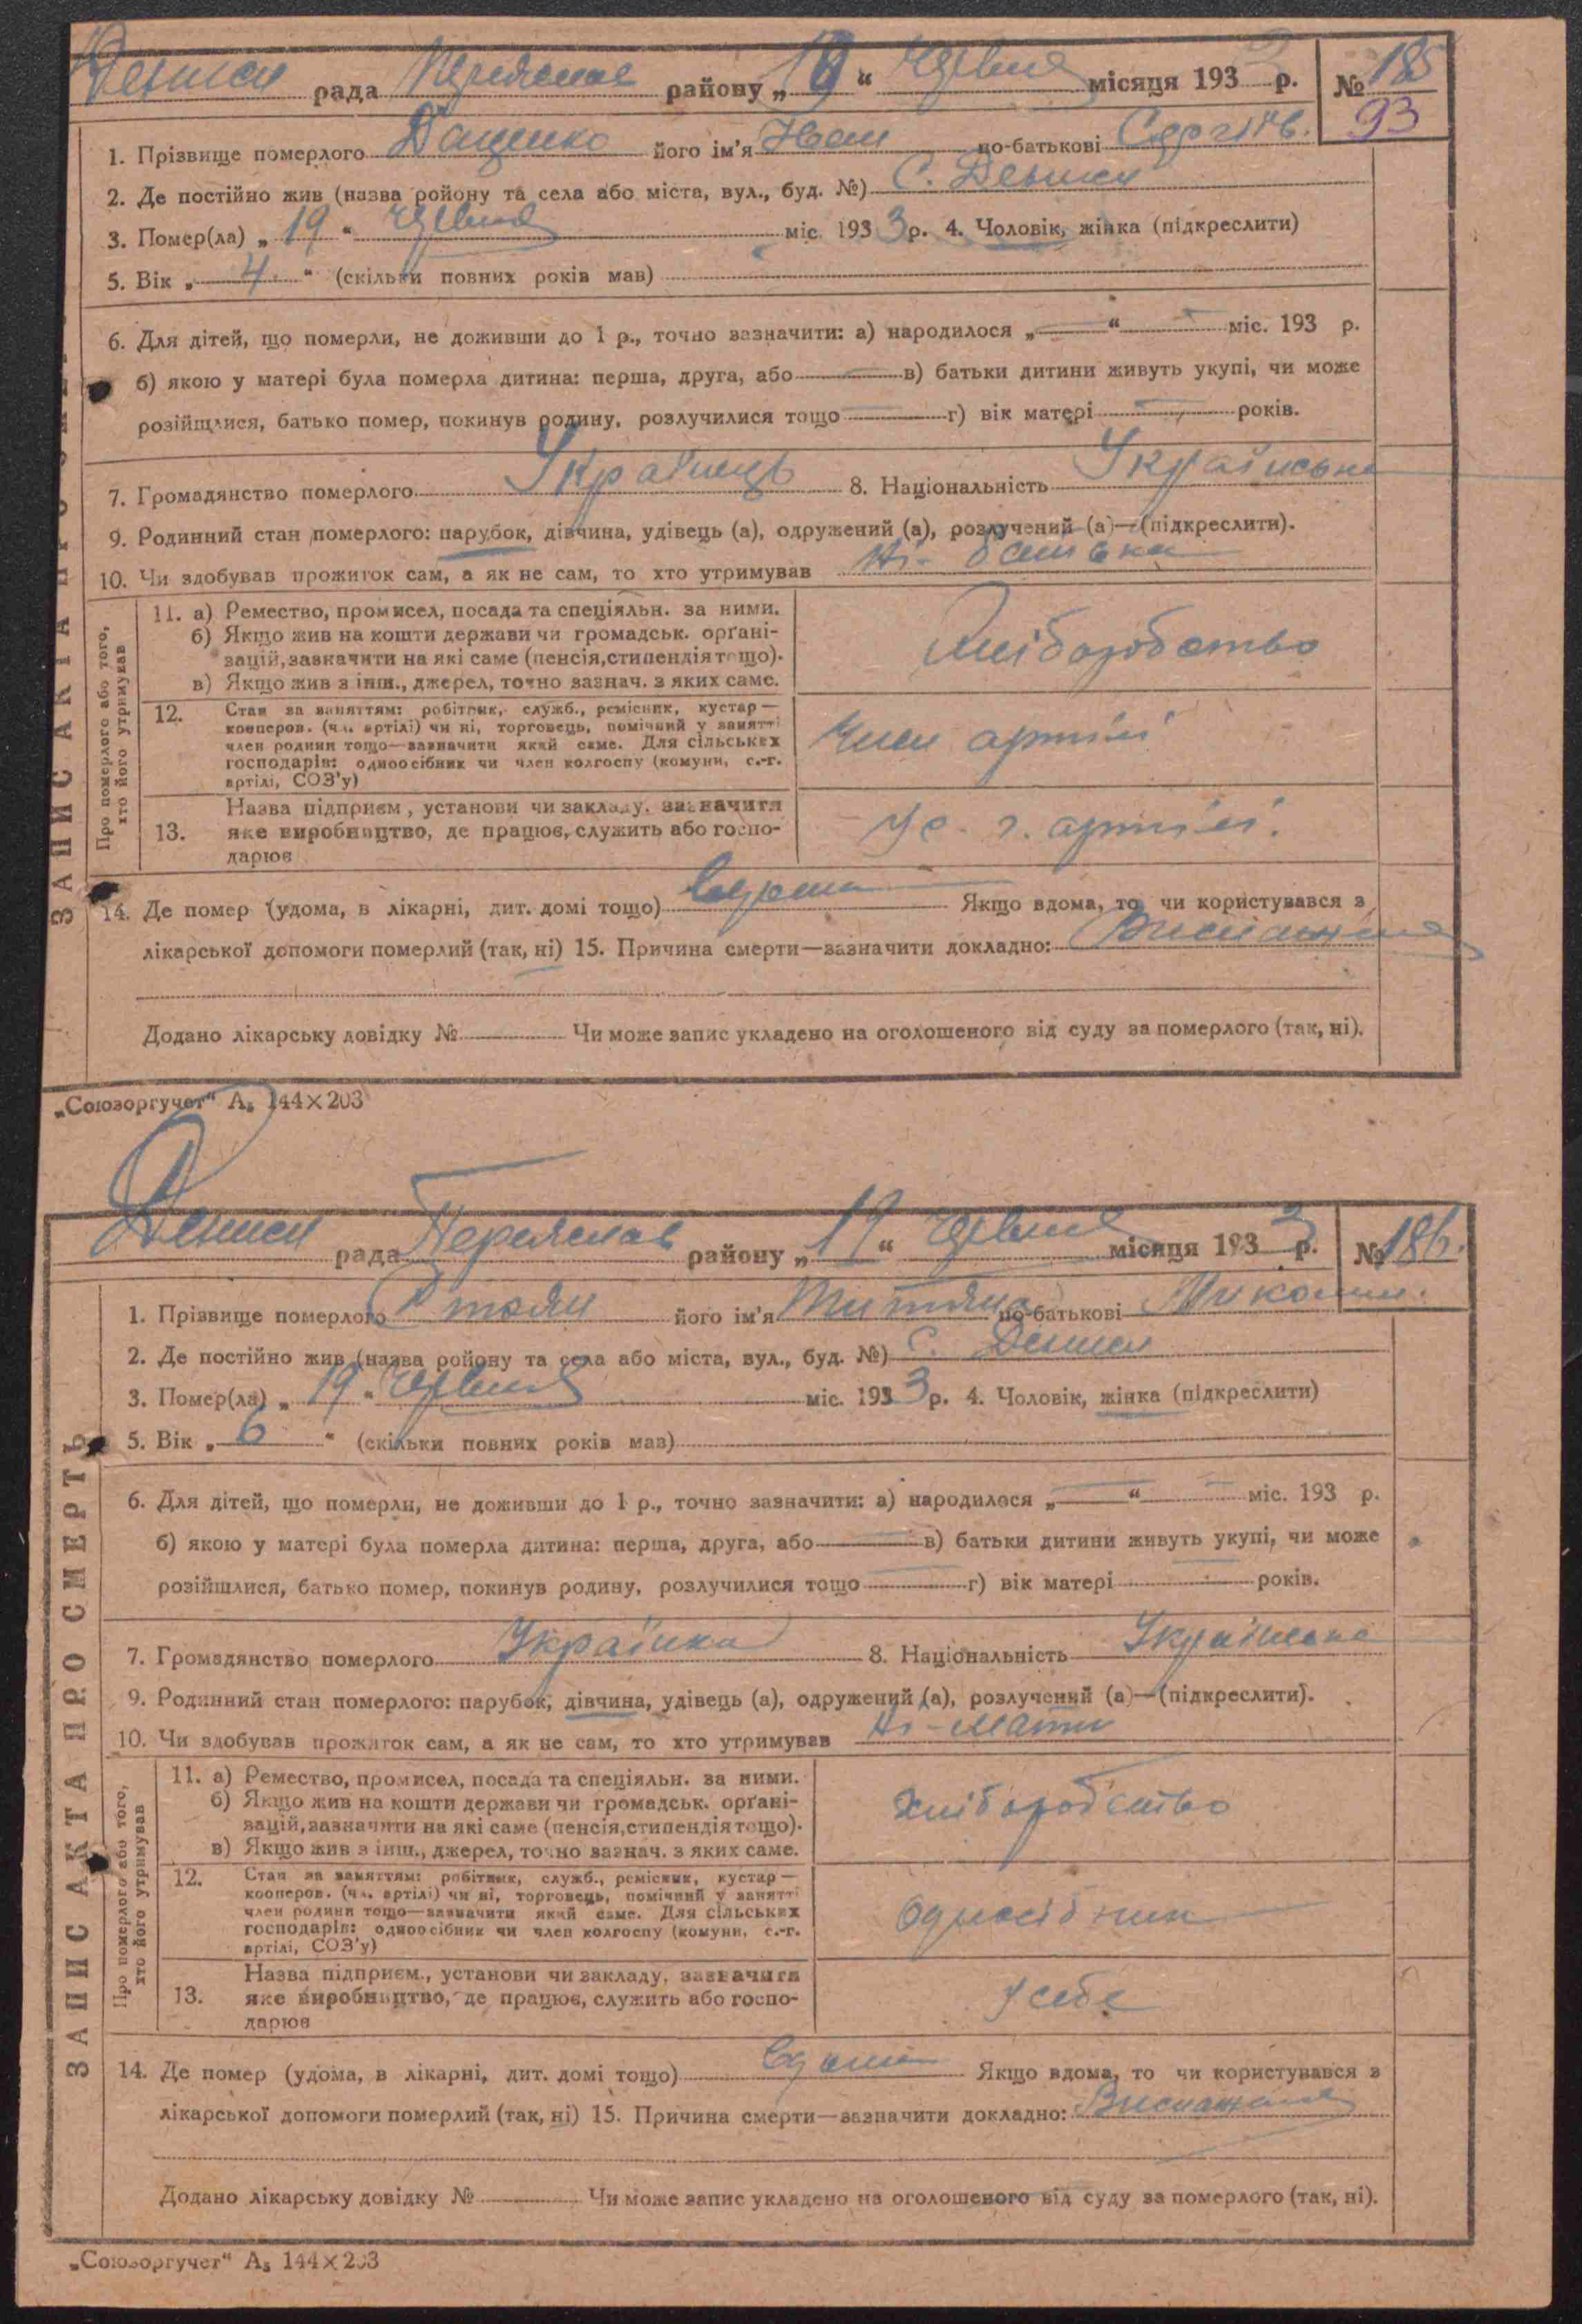 Дениси рада Переяслав району „19“ Червня місяця 1933 р. № 185
93
1. Прізвище померлого Даценко його ім'я Іван по-батькові Сергійв.
2. Де постійно жив (назва ройону та села або міста, вул., буд. №) С. Дениси
3. Помер(ла) „19“ Червня міс. 1933 р. 4. Чоловік, жінка (підкреслити)
5. Вік „4“ (скільки повних років мав)
6. Для дітей, що померли, не доживши до 1 р., точно зазначити: а) народилося „—“ — міс. 193 р.
б) якою у матері була померла дитина: перша, друга, або — в) батьки дитини живуть укупі, чи може
розійшлися, батько помер, покинув родину, розлучилися тощо — г) вік матері — років.
7. Громадянство померлого Українець 8. Національність Українська
9. Родинний стан померлого: парубок, дівчина, удівець (а), одружений (а), розлучений (а)—(підкреслити).
10. Чи здобував прожиток сам, а як не сам, то хто утримував Ні - батько
ЗАПИС АКТА ПРО
Про померлого або того, хто його утримував
11. а) Ремество, промисел, посада та спеціяльн. за ними.
б) Якщо жив на кошти держави чи громадськ. орґані-
зацій, зазначити на які саме (пенсія, стипендія тощо).
в) Якщо жив з інш., джерел, точно зазнач. з яких саме.
Хліборобство
12. Стан за заняттям: робітник, служб., ремісник, кустар—
кооперов. (чл. артілі) чи ні, торговець, помічний у занятті
член родини тощо—зазначити який саме. Для сільських
господарів: одноосібник чи член колгоспу (комуни, с.-г.
артілі, СОЗ'у)
Член артілі
13. Назва підприєм., установи чи закладу, зазначити
яке виробництво, де працює, служить або госпо-
дарює
У с. г. артілі.
14. Де помер (удома, в лікарні, дит. домі тощо) вдома Якщо вдома, то чи користувався з
лікарської допомоги померлий (так, ні) 15. Причина смерти—зазначити докладно: Виснаження
Додано лікарську довідку № Чи може запис укладено на оголошеного від суду за померлого (так, ні).
„Союзоргучет“ А₅ 144×203
Дениси рада Переяслав району „19“ Червня місяця 1933 р. № 186.
1. Прізвище померлого Стоян його ім'я Титяна по-батькові Микол
2. Де постійно жив (назва ройону та села або міста, вул., буд. №) С. Дениси
3. Помер(ла) „19“ Червня міс. 1933 р. 4. Чоловік, жінка (підкреслити)
5. Вік „6“ (скільки повних років мав)
6. Для дітей, що померли, не доживши до 1 р., точно зазначити: а) народилося „—“ — міс. 193 р.
б) якою у матері була померла дитина: перша, друга, або — в) батьки дитини живуть укупі, чи може
розійшлися, батько помер, покинув родину, розлучилися тощо — г) вік матері — років.
7. Громадянство померлого Українка 8. Національність Українська
9. Родинний стан померлого: парубок, дівчина, удівець (а), одружений (а), розлучений (а)—(підкреслити).
10. Чи здобував прожиток сам, а як не сам, то хто утримував Ні - мати
ЗАПИС АКТА ПРО СМЕРТЬ
Про померлого або того, хто його утримував
11. а) Ремество, промисел, посада та спеціяльн. за ними.
б) Якщо жив на кошти держави чи громадськ. орґані-
зацій, зазначити на які саме (пенсія, стипендія тощо).
в) Якщо жив з інш., джерел, точно зазнач. з яких саме.
Хліборобство
12. Стан за заняттям: робітник, служб., ремісник, кустар—
кооперов. (чл. артілі) чи ні, торговець, помічний у занятті
член родини тощо—зазначити який саме. Для сільських
господарів: одноосібник чи член колгоспу (комуни, с.-г.
артілі, СОЗ'у)
Одноосібник
13. Назва підприєм., установи чи закладу, зазначити
яке виробництво, де працює, служить або госпо-
дарює
У себе
14. Де помер (удома, в лікарні, дит. домі тощо) вдома Якщо вдома, то чи користувався з
лікарської допомоги померлий (так, ні) 15. Причина смерти—зазначити докладно: Виснаження
Додано лікарську довідку № Чи може запис укладено на оголошеного від суду за померлого (так, ні).
„Союзоргучет“ А₅ 144×203